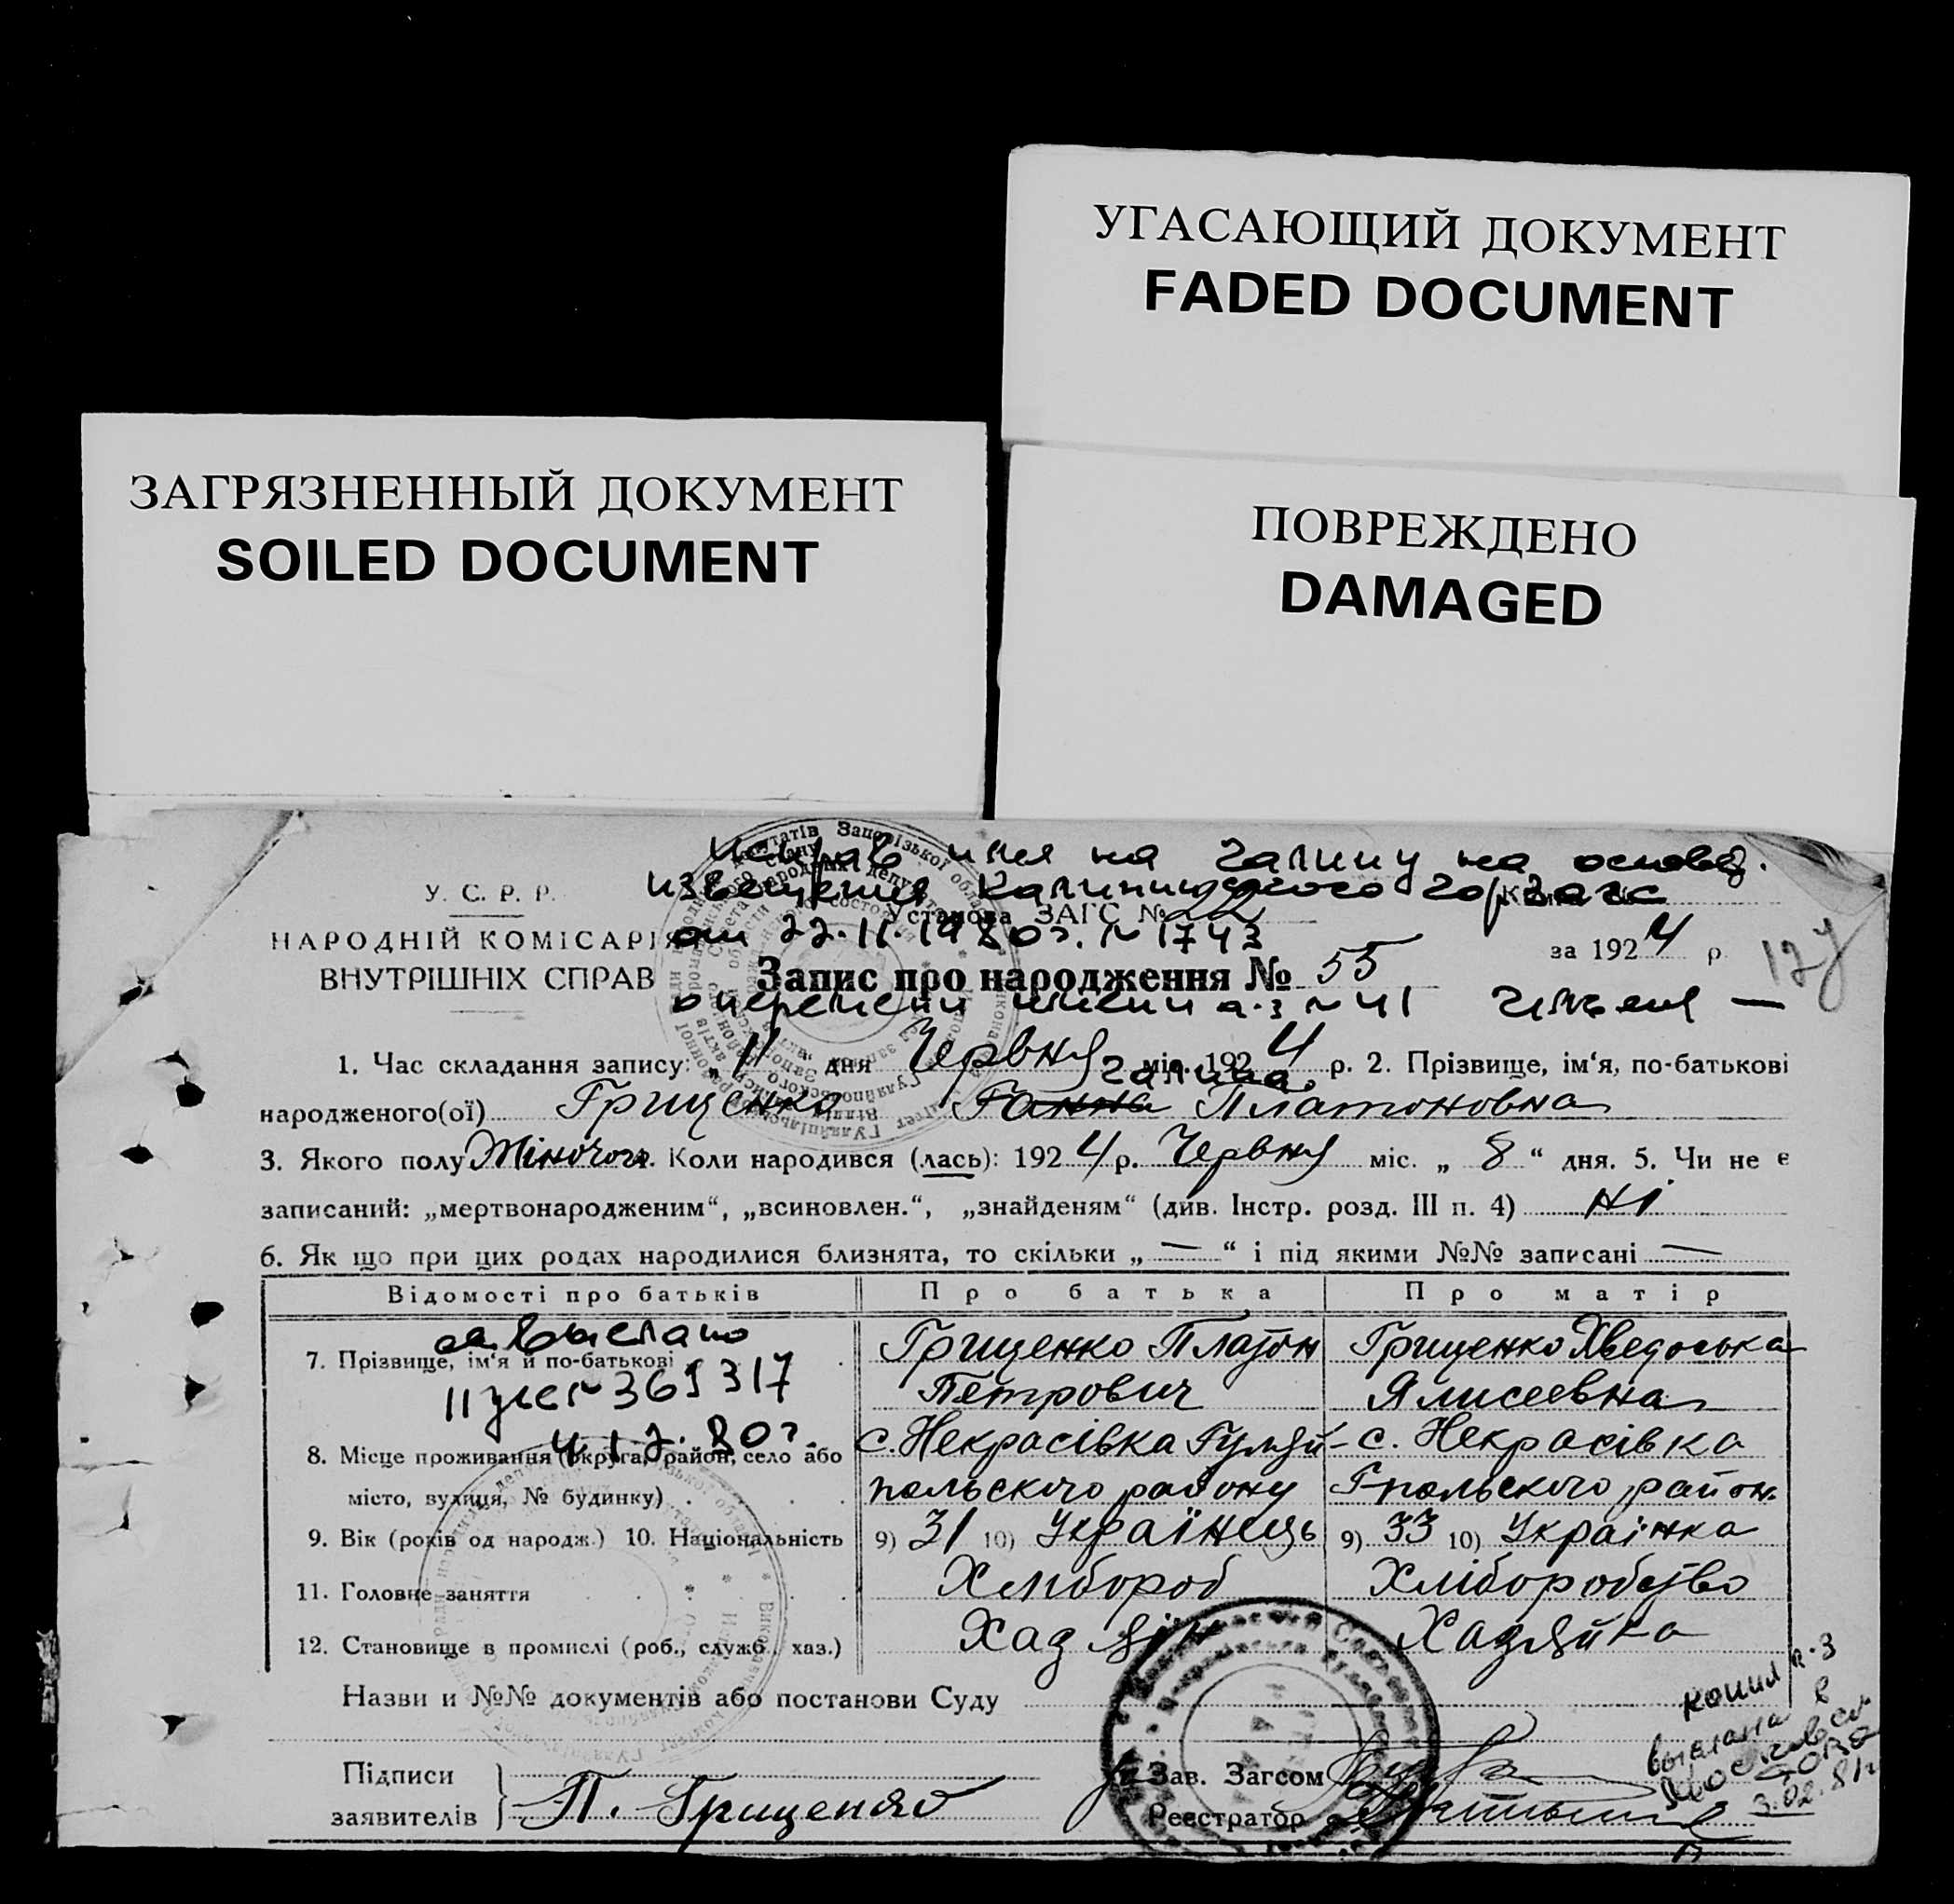 УГАСАЮЩИЙ ДОКУМЕНТ
FADED DOCUMENT
ЗАГРЯЗНЕННЫЙ ДОКУМЕНТ
SOILED DOCUMENT
ПОВРЕЖДЕНО
DAMAGED
имя на Галину на основ.
извещения Калининского горзагс
от 22.11.1980г. № 1743
о перемени имени а.з № 41
У. С. Р. Р.
НАРОДНІЙ КОМІСАРІЯ
ВНУТРІШНІХ СПРАВ
Установа ЗАГС № 22
за 1924 р.
127
Запис про народження № 55
1. Час складання запису: „11 дня Червня міс. 1924 р. 2. Прізвище, ім‘я, по-батькові
Галина
народженого(ої) Грищенко Ганна Платоновна
3. Якого полу Жіночого. Коли народився (лась): 1924 р. Червня міс. „ 8 “ дня. 5. Чи не є
записаний: „мертвонародженим“, „всиновлен.“, „знайденям“ (див. Інстр. розд. III п. 4) Ні
6. Як що при цих родах народилися близнята, то скільки „ — “ і під якими №№ записані —
Відомості про батьків Про батька Про матір
выслано
7. Прізвище, ім‘я й по-батькові Грищенко Платон Грищенко Хведоська
369317 Петрович Ялисеевна
8. Місце проживання (округа, район, село або с. Некрасівка Гуляй- с. Некрасівка
місто, вулиця, № будинку) польского району Г-польского район.
9. Вік (років од народж.) 10. Національність 9) 31 10) Українець 9) 33 10) Украінка
11. Головне заняття Хлибороб Хліборобство
12. Становище в промислі (роб., служб., хаз.) Хадзяін Хадзяйка
Назви и №№ документів або постанови Суду
копия а.з
выслана в
3.02.81г
Підписи
заявителів П. Грищенко
Зав. Загсом
Реєстратор